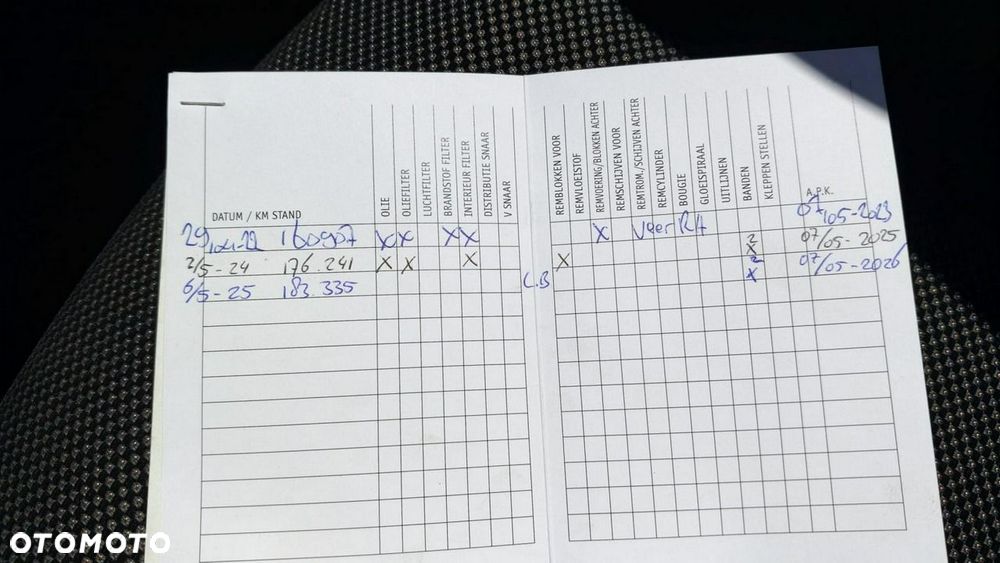 DATUM / KM STAND
OLIE
OLIEFILTER
LUCHTFILTER
BRANDSTOF FILTER
INTERIEUR FILTER
DISTRIBUTIE SNAAR
V SNAAR
REMBLOKKEN VOOR
REMVLOEISTOF
REMVOERING/BLOKKEN ACHTER
REMSCHIJVEN VOOR
REMTROM./SCHIJVEN ACHTER
REMCYLINDER
BOUGIE
GLOEISPIRAAL
UITLIJNEN
BANDEN
KLEPPEN STELLEN
A.P.K.
X X X X X veer RA 07/05-2023
2/5-24 176.241 X X X X 2 X 07/05-2025
6/5-25 183.335 C.B 2 X 07/05-2026
OTOMOTO